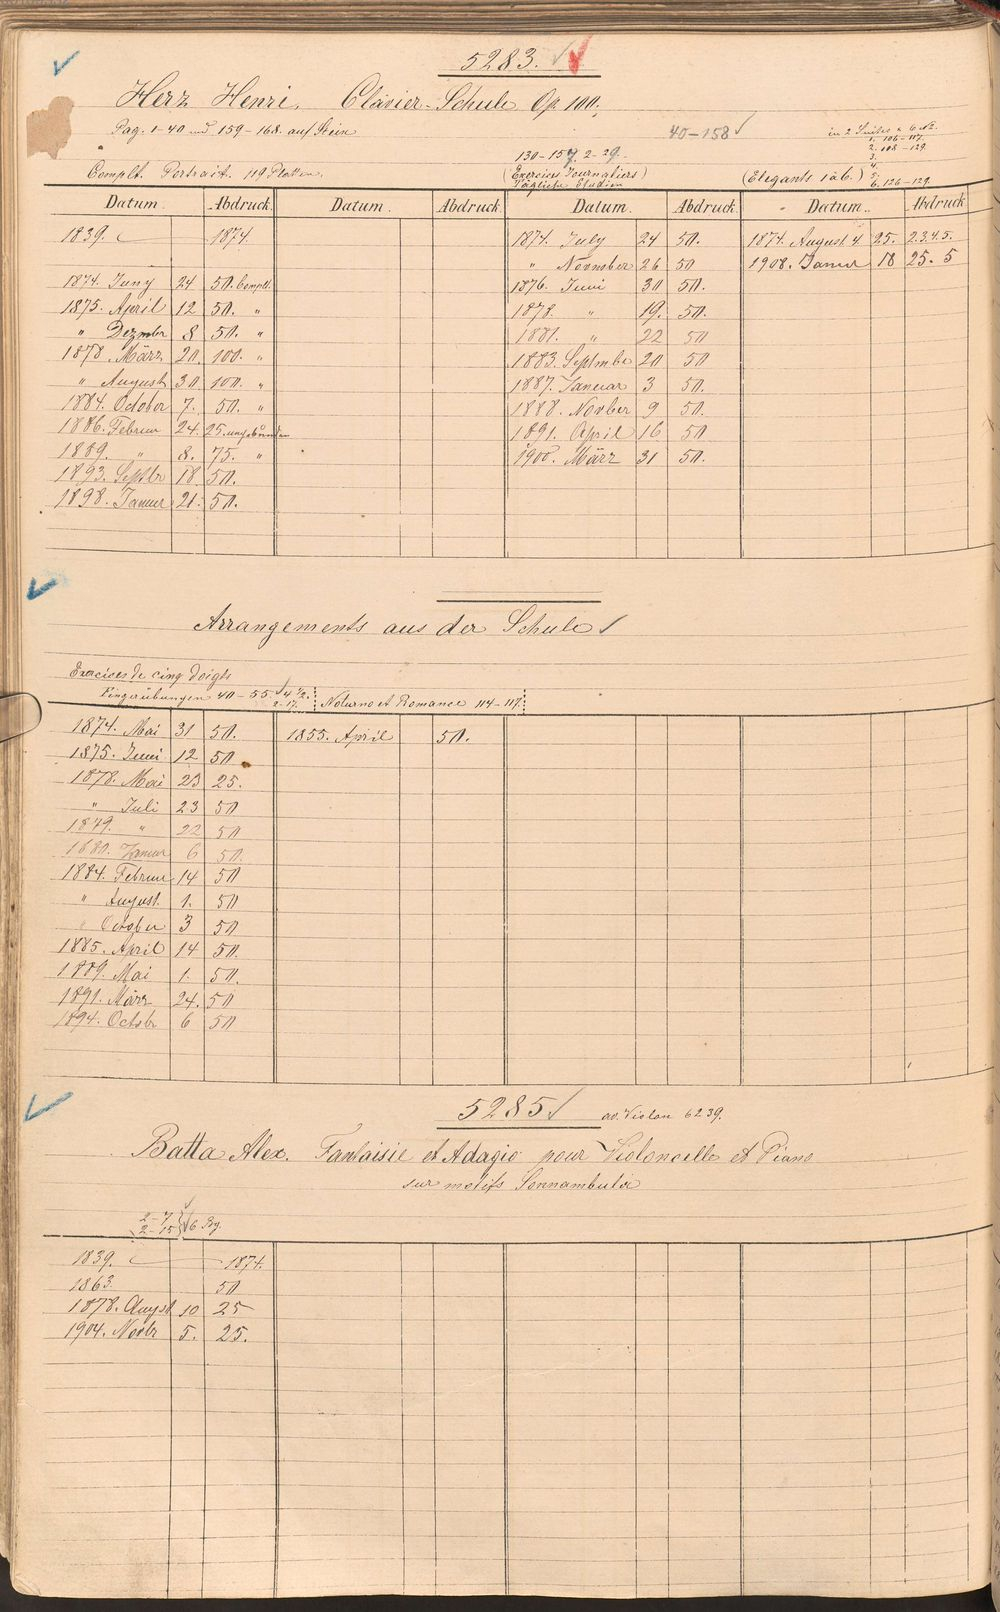 5283.
Herz Henri. Clavier-Schule Op 100.
Pag. 1-40 und 159-168. auf Stein
40-158
in 2 Suites a 6 No.
1. 106-117.
2. 118-129.
3.
4.
5.
6. 126-129.
130-157. 2-29.
(Exercices Journaliers)
Tägliche Studien
(Elegants 1 à 6.)
Complt. Portrait. 119 Platten.
Datum. Abdruck. Datum. Abdruck. Datum. Abdruck. Datum. Abdruck
1839. 1874.
1874. Juny 24 50. complt.
1875. April 12 50. "
" Dezember 8 50. "
1878. März 20. 100. "
" August 30 100. "
1884. October 7. 50. "
1886. Februar 24. 25. ungebunden
1889. " 8. 75. "
1893. Septbr 18 50.
1898. Januar 21. 50.
1874. July 24 50.
" November 26 50
1876. Juni 30 50.
1878. " 19. 50.
1881. " 22 50
1883. Septmbe 20 50
1887. Januar 3 50.
1888. Novber 9 50.
1891. April 16 50
1900. März 31 50.
1874. August 4 25. 2.3.4.5.
1908. Januar 18 25. 5
Arrangements aus der Schule
Exercises de cinq doigts
Fingerübungen 40-55. 4 1/2.
2-17.
Noturno et Romance 114-117.
1874. Mai 31 50.
1875. Juni 12 50
1878. Mai 23 25.
" Juli 23 50
1879. " 22 50
1880. Januar 6 50.
1884. Februar 14 50
" August. 1. 50
" October 3 50
1885. April 14 50.
1889. Mai 1. 50.
1891. März 24. 50
1894. Octobr 6 50
1855. April 50.
5285
ad. Violon 6239.
Batta Alex. Fantaisie et Adagio pour Violoncelle et Piano
sur motifs Sonnambula
2-7
2-15 } 6 Bg.
1839. 1874.
1863. 50
1878. August 10 25
1904. Novbr 5. 25.